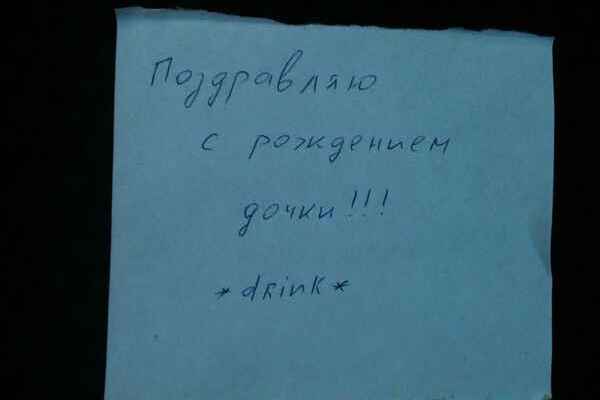 Поздравляю
с рождением
дочки!!!
*drink*